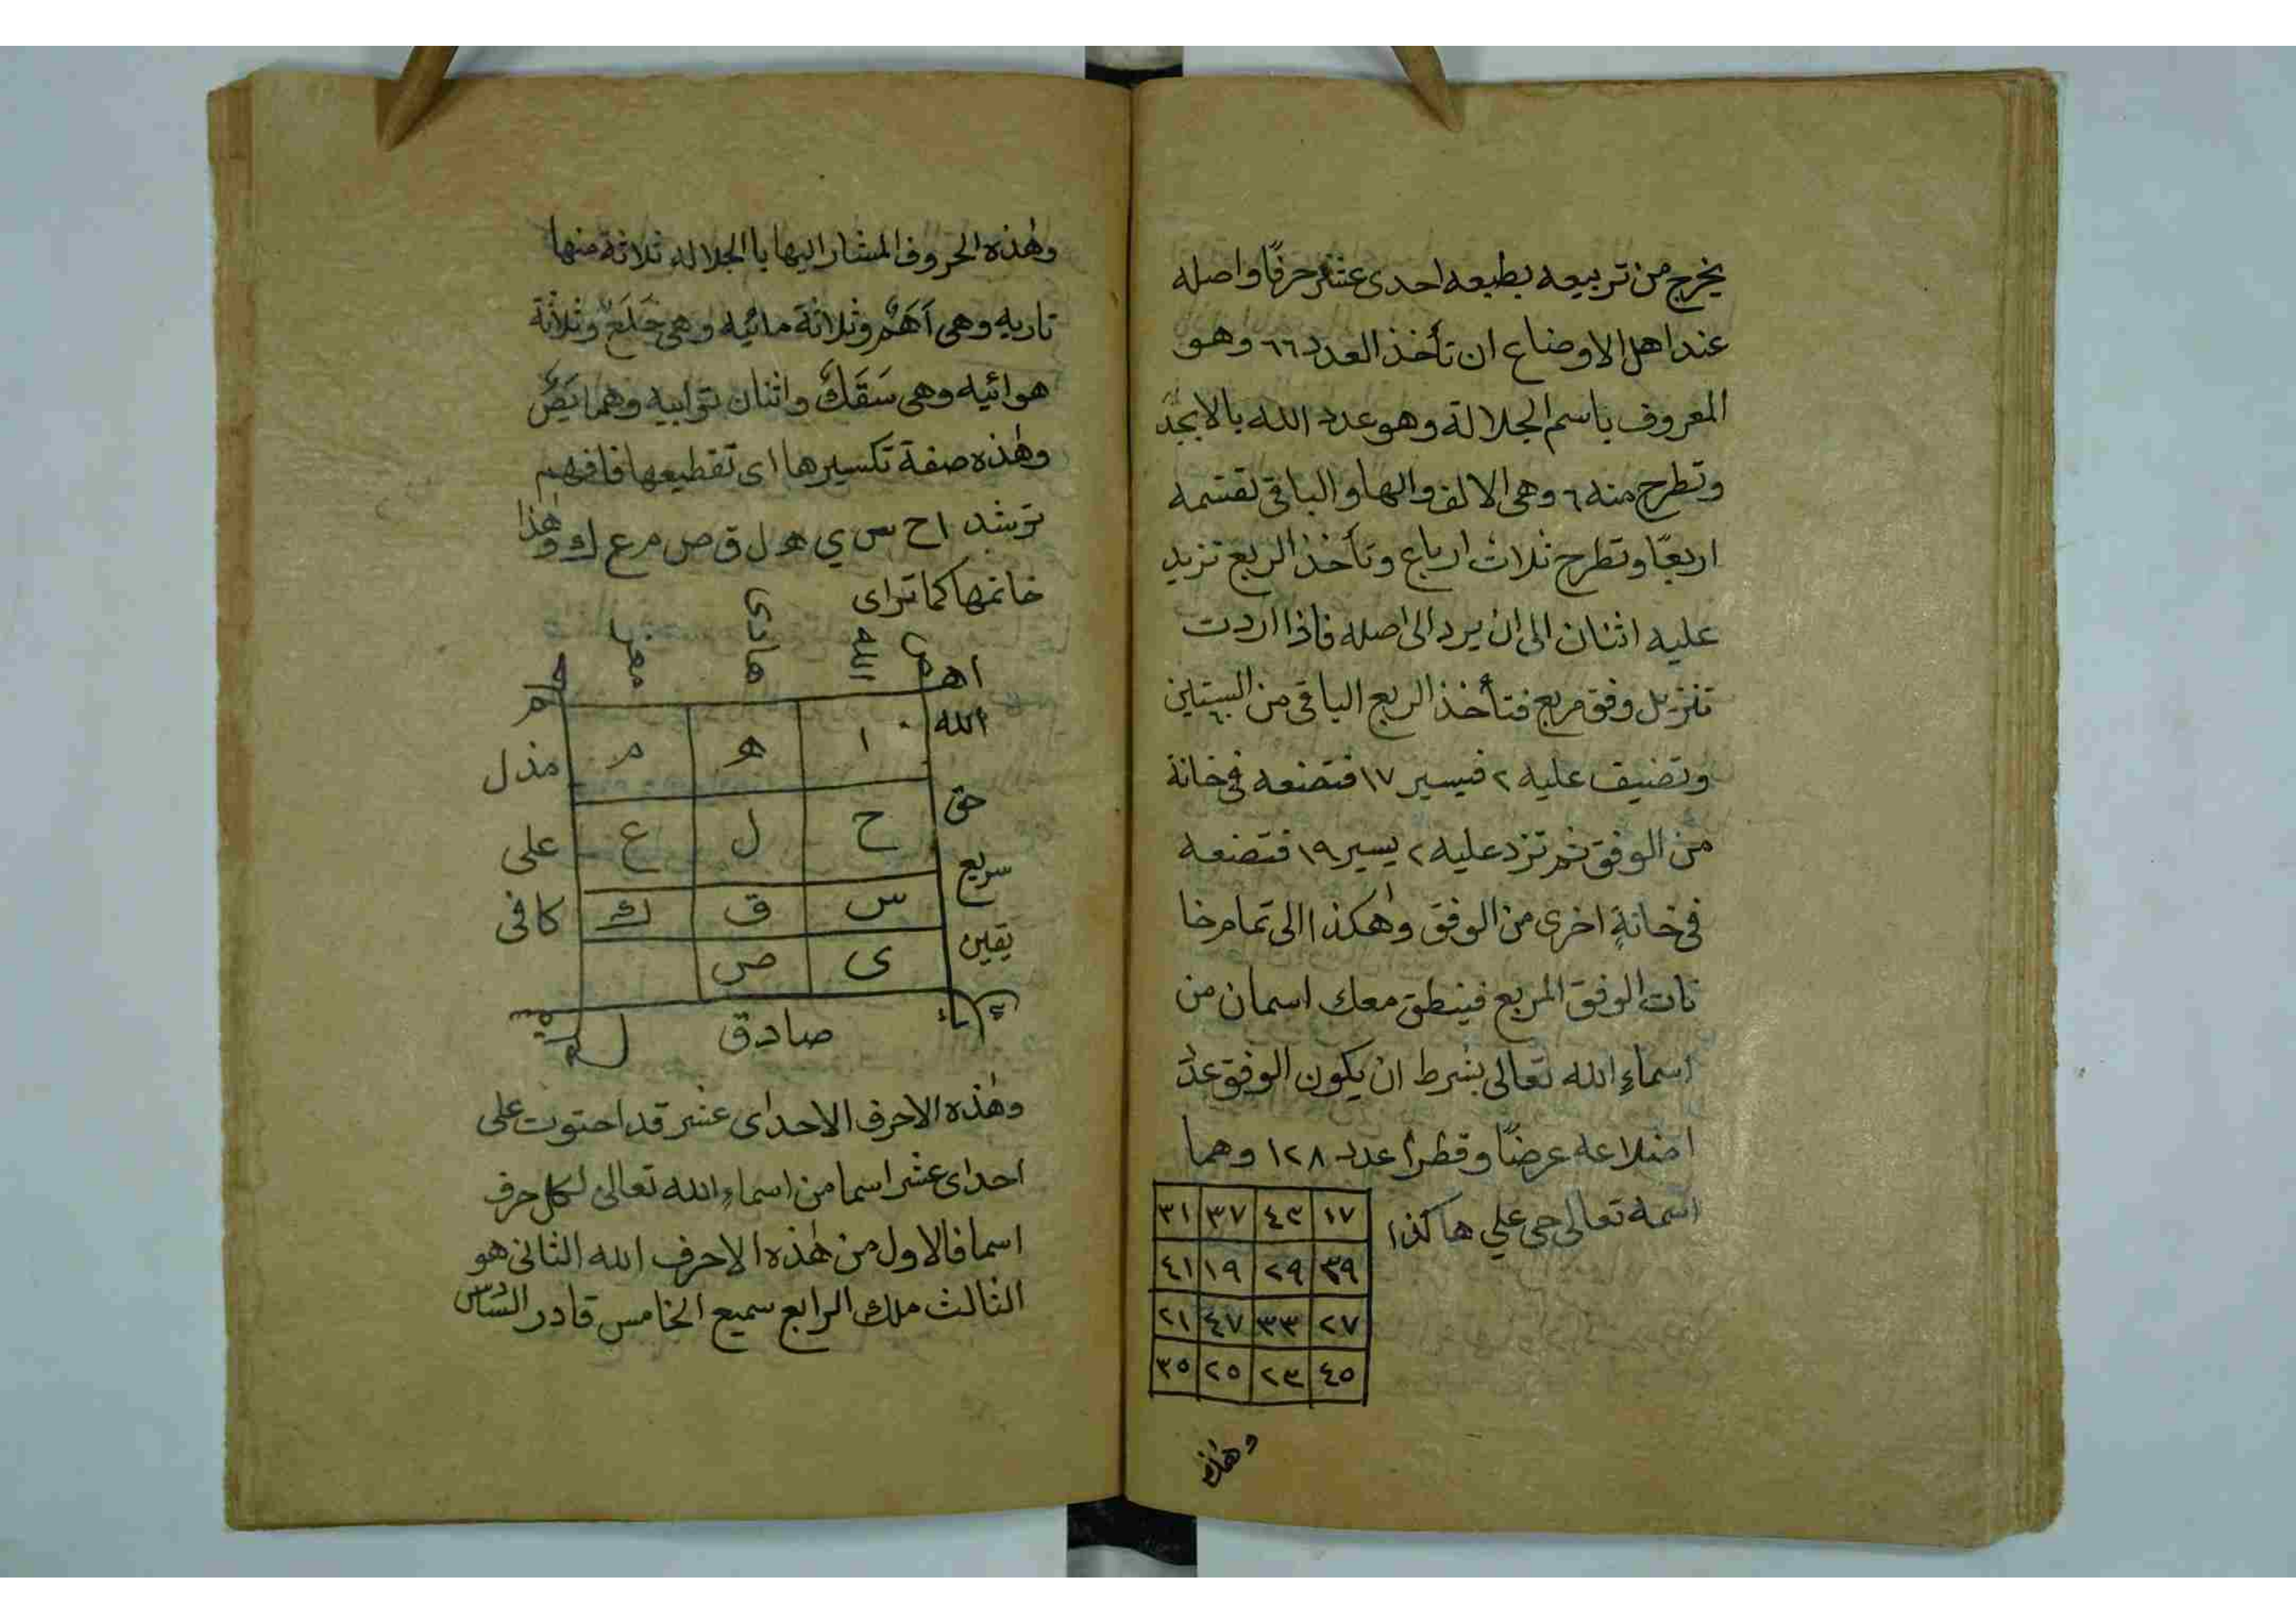 يخرج من تربيعه بطبعه احدى عشر حرفًا واصله
عند اهل الاوضاع ان تأخذ العدد ٦٦ وهو
المعروف باسم الجلالة وهو عدد الله بالابجد
وتطرح منه ٦ وهى الالف والها والباقى تقسمه
اربعًا وتطرح ثلاث ارباع وتأخذ الربع تزيد
عليه اثنان الى ان يرد الى اصله فاذا اردت
تنزيل وفق مربع فتأخذ الربع الباقى من الستين
٦٠
وتضيف عليه ٢ فيسير ١٧ فتضعه فى خانة
من الوفق ثم تزد عليه ٢ يسير ١٩ فتضعه
فى خانةٍ اخرى من الوفق وهٰكذا الى تمام خا
نات الوفق المربع فينطق معك اسمان من
اسماءِ الله تعالى بشرط ان يكون الوفق عدد
اضلاعه عرضًا وقطرًا عدد ١٢٨ وهما
اسمه تعالى حى علي هاكذا
١٧ ٤٣ ٣٧ ٣١
٣٩ ٢٩ ١٩ ٤١
٢٧ ٣٣ ٤٧ ٢١
٤٥ ٢٣ ٢٥ ٣٥
وهٰذه
وهٰذه الحروف المشار اليها با الجلاله ثلاثة منها
ناريه وهى اَهَمٌ وثلاثة مائيه وهى حَلَعٌ وثلاثة
هوائيه وهى سَقَكٌ واثنان ترابيه وهما يَصٌ
وهٰذه صفة تكسيرها اى تقطيعها فافهم
ترشد ا ح س ي هـ ل ق ص م ع ك وهٰذا
خاتمها كما تراى
الله هادى
اهم
الله ا هـ م مذل
حق ح ل ع على
سريع س ق ك كافى
يقين ى ص
صادق
وهٰذه الاحرف الاحداى عشر قد احتوت على
احداى عشر اسما من اسماءِ الله تعالى لكل حرف
اسما فالاول من هٰذه الاحرف الله الثانى هو
الثالث ملك الرابع سميع الخامس قادر السادس